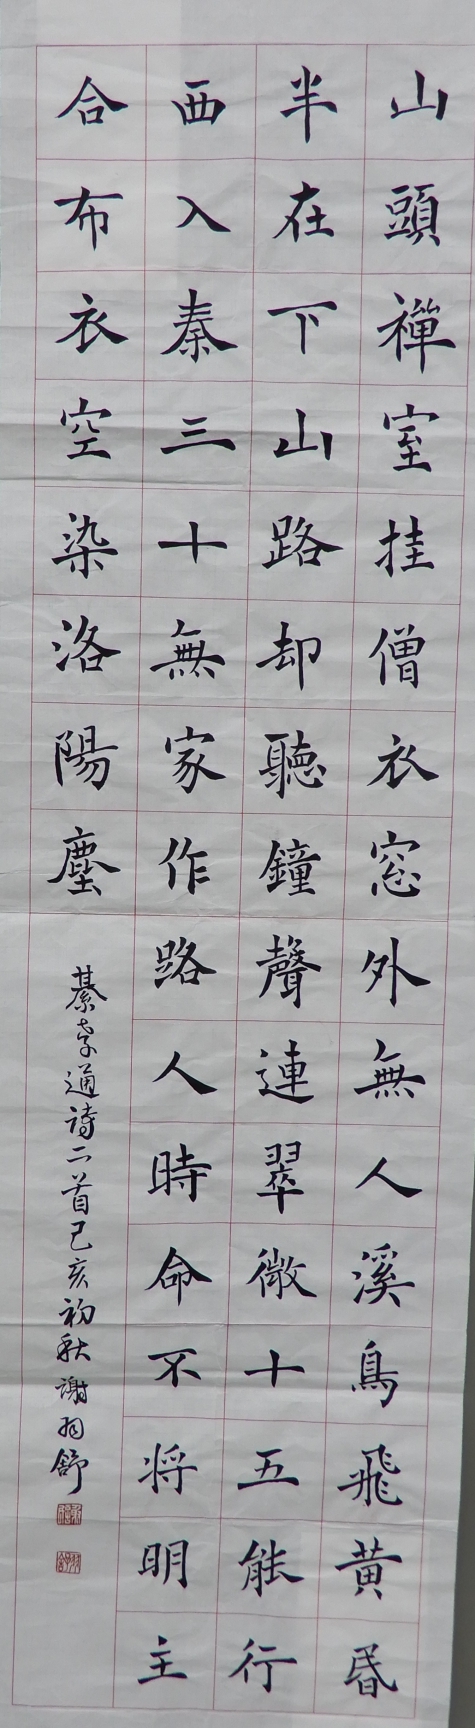 山頭禪室挂僧衣窓外無人溪鳥飛黄昬
半在下山路却聽鐘聲連翠微十五能行
西入秦三十無家作路人時命不將明主
合布衣空染洛陽塵
綦毋通诗二首己亥初秋謝羽舒